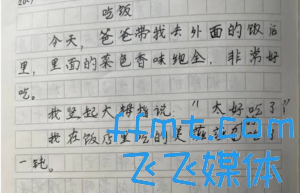 吃饭
今天,爸爸带我去外面的饭店
里,里面的菜色香味俱全,非常好
吃。
我竖起大拇指说:“太好吃了!”
我在饭店里吃的
一吨。
ffmt.com
飞飞媒体